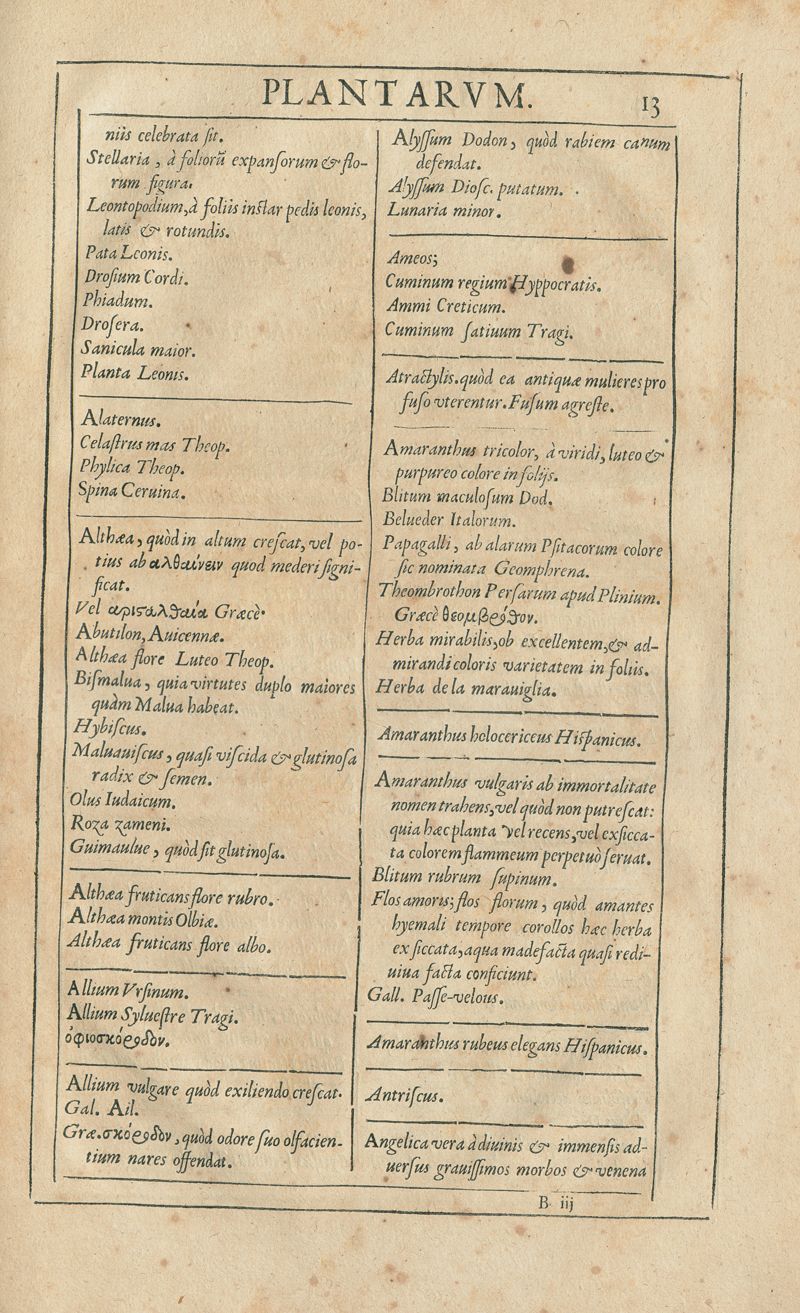 PLANTARVM.
13
niis celebrata ſit.
Stellaria, à foliorũ expanſorum & flo-
rum figura.
Leontopodium, à foliis inſtar pedis leonis,
latis & rotundis.
Pata Leonis.
Droſium Cordi.
Phiadum.
Droſera.
Sanicula maior.
Planta Leonis.
Alaternus.
Celaſtrus mas Theop.
Phylica Theop.
Spina Ceruina.
Althæa, quòd in altum creſcat, vel po-
tius ab αλθαίνειν quod mederi ſigni-
ficat.
Vel αρισαλθαία Græcè.
Abutilon, Auicennæ.
Althæa flore Luteo Theop.
Biſmalua, quia virtutes duplo maiores
quàm Malua habeat.
Hybiſcus.
Maluauiſcus, quaſi viſcida & glutinoſa
radix & ſemen.
Olus Iudaicum.
Roza zameni.
Guimaulue, quòd ſit glutinoſa.
Althæa fruticans flore rubro.
Althæa montis Olbiæ.
Althæa fruticans flore albo.
Allium Vrſinum.
Allium Sylueſtre Tragi.
ὀφιοσκόρδον.
Allium vulgare quòd exiliendo creſcat.
Gal. Ail.
Græ. σκόρδον, quòd odore ſuo olfacien-
tium nares offendat.
Alyſſum Dodon, quòd rabiem canum
defendat.
Alyſſum Dioſc. putatum.
Lunaria minor.
Ameos;
Cuminum regium Hyppocratis.
Ammi Creticum.
Cuminum ſatiuum Tragi.
Atractylis. quòd ea antiquæ mulieres pro
fuſo vterentur. Fuſum agreſte.
Amaranthus tricolor, à viridi, luteo &
purpureo colore in folijs.
Blitum maculoſum Dod.
Belueder Italorum.
Papagalli, ab alarum Pſitacorum colore
ſic nominata Geomphrena.
Theombrothon Perſarum apud Plinium.
Græcè θεομβρόθον.
Herba mirabilis, ob excellentem, & ad-
mirandi coloris varietatem in foliis.
Herba de la marauiglia.
Amaranthus holocericeus Hiſpanicus.
Amaranthus vulgaris ab immortalitate
nomen trahens, vel quòd non putreſcat:
quia hæc planta vel recens, vel exſicca-
ta colorem flammeum perpetuò ſeruat.
Blitum rubrum ſupinum.
Flos amoris; flos florum, quòd amantes
hyemali tempore corollos hæc herba
exſiccata, aqua madefacta quaſi redi-
uiua facta conficiunt.
Gall. Paſſe-velous.
Amaranthus rubeus elegans Hiſpanicus.
Antriſcus.
Angelica vera à diuinis & immenſis ad-
uerſus grauiſſimos morbos & venena
B iij